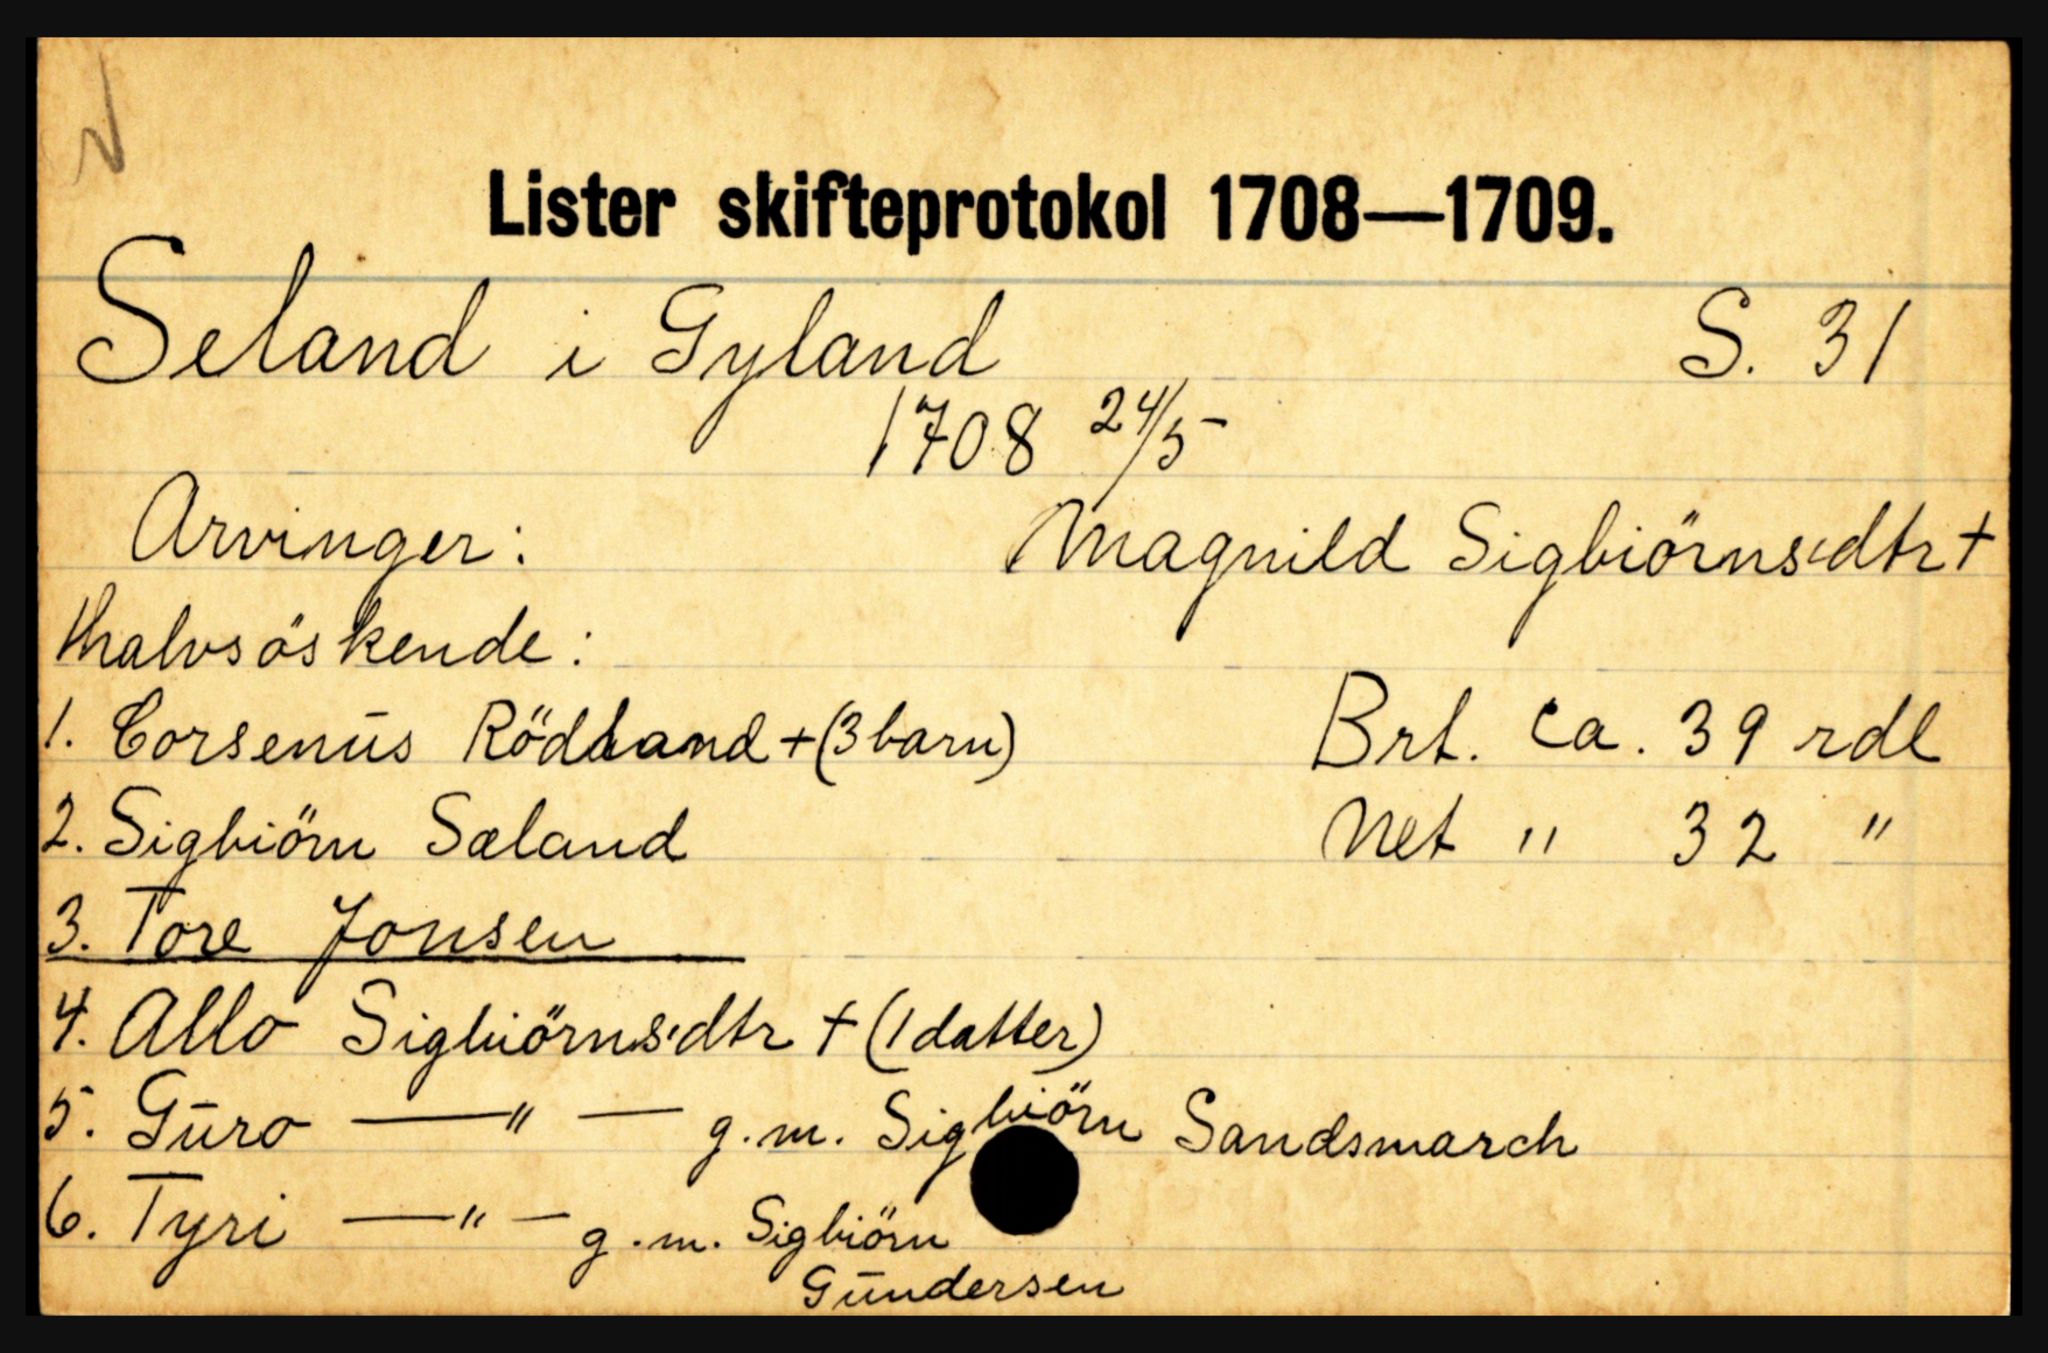 Lister skifteprotokol 1708—1709.
Seland i Gyland S. 31
1708 24/5
Arvinger: Magnild Sigbiörnsdtr +
Halvsöskende:
1. Corsenūs Rödland + (3 barn) Brt. ca. 39 rdl
2. Sigbiörn Sæland Net " 32 "
3. Tore Jonsen
4. Allo Sigbiörnsdtr + (1 datter)
5. Gūro —"— g.m. Sigbiörn Sandsmarch
6. Tyri —"— g.m. Sigbiörn
Gūndersen